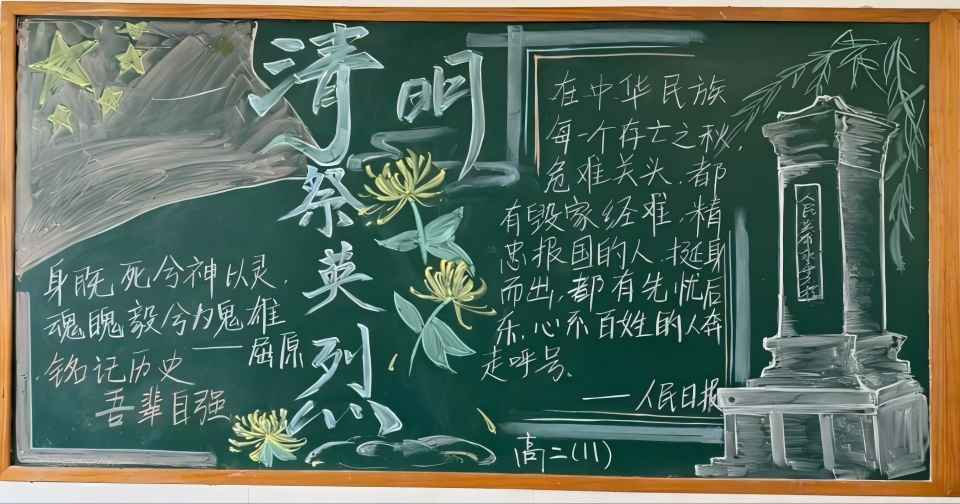 清明
祭英烈
身既死兮神以灵,
魂魄毅兮为鬼雄
——屈原
铭记历史
吾辈自强
在中华民族
每一个存亡之秋,
危难关头,都
有毁家经难,精
忠报国的人,挺身
而出,都有先忧后
乐,心系百姓的人奔
走呼号.
——人民日报
高二(11)
人民英